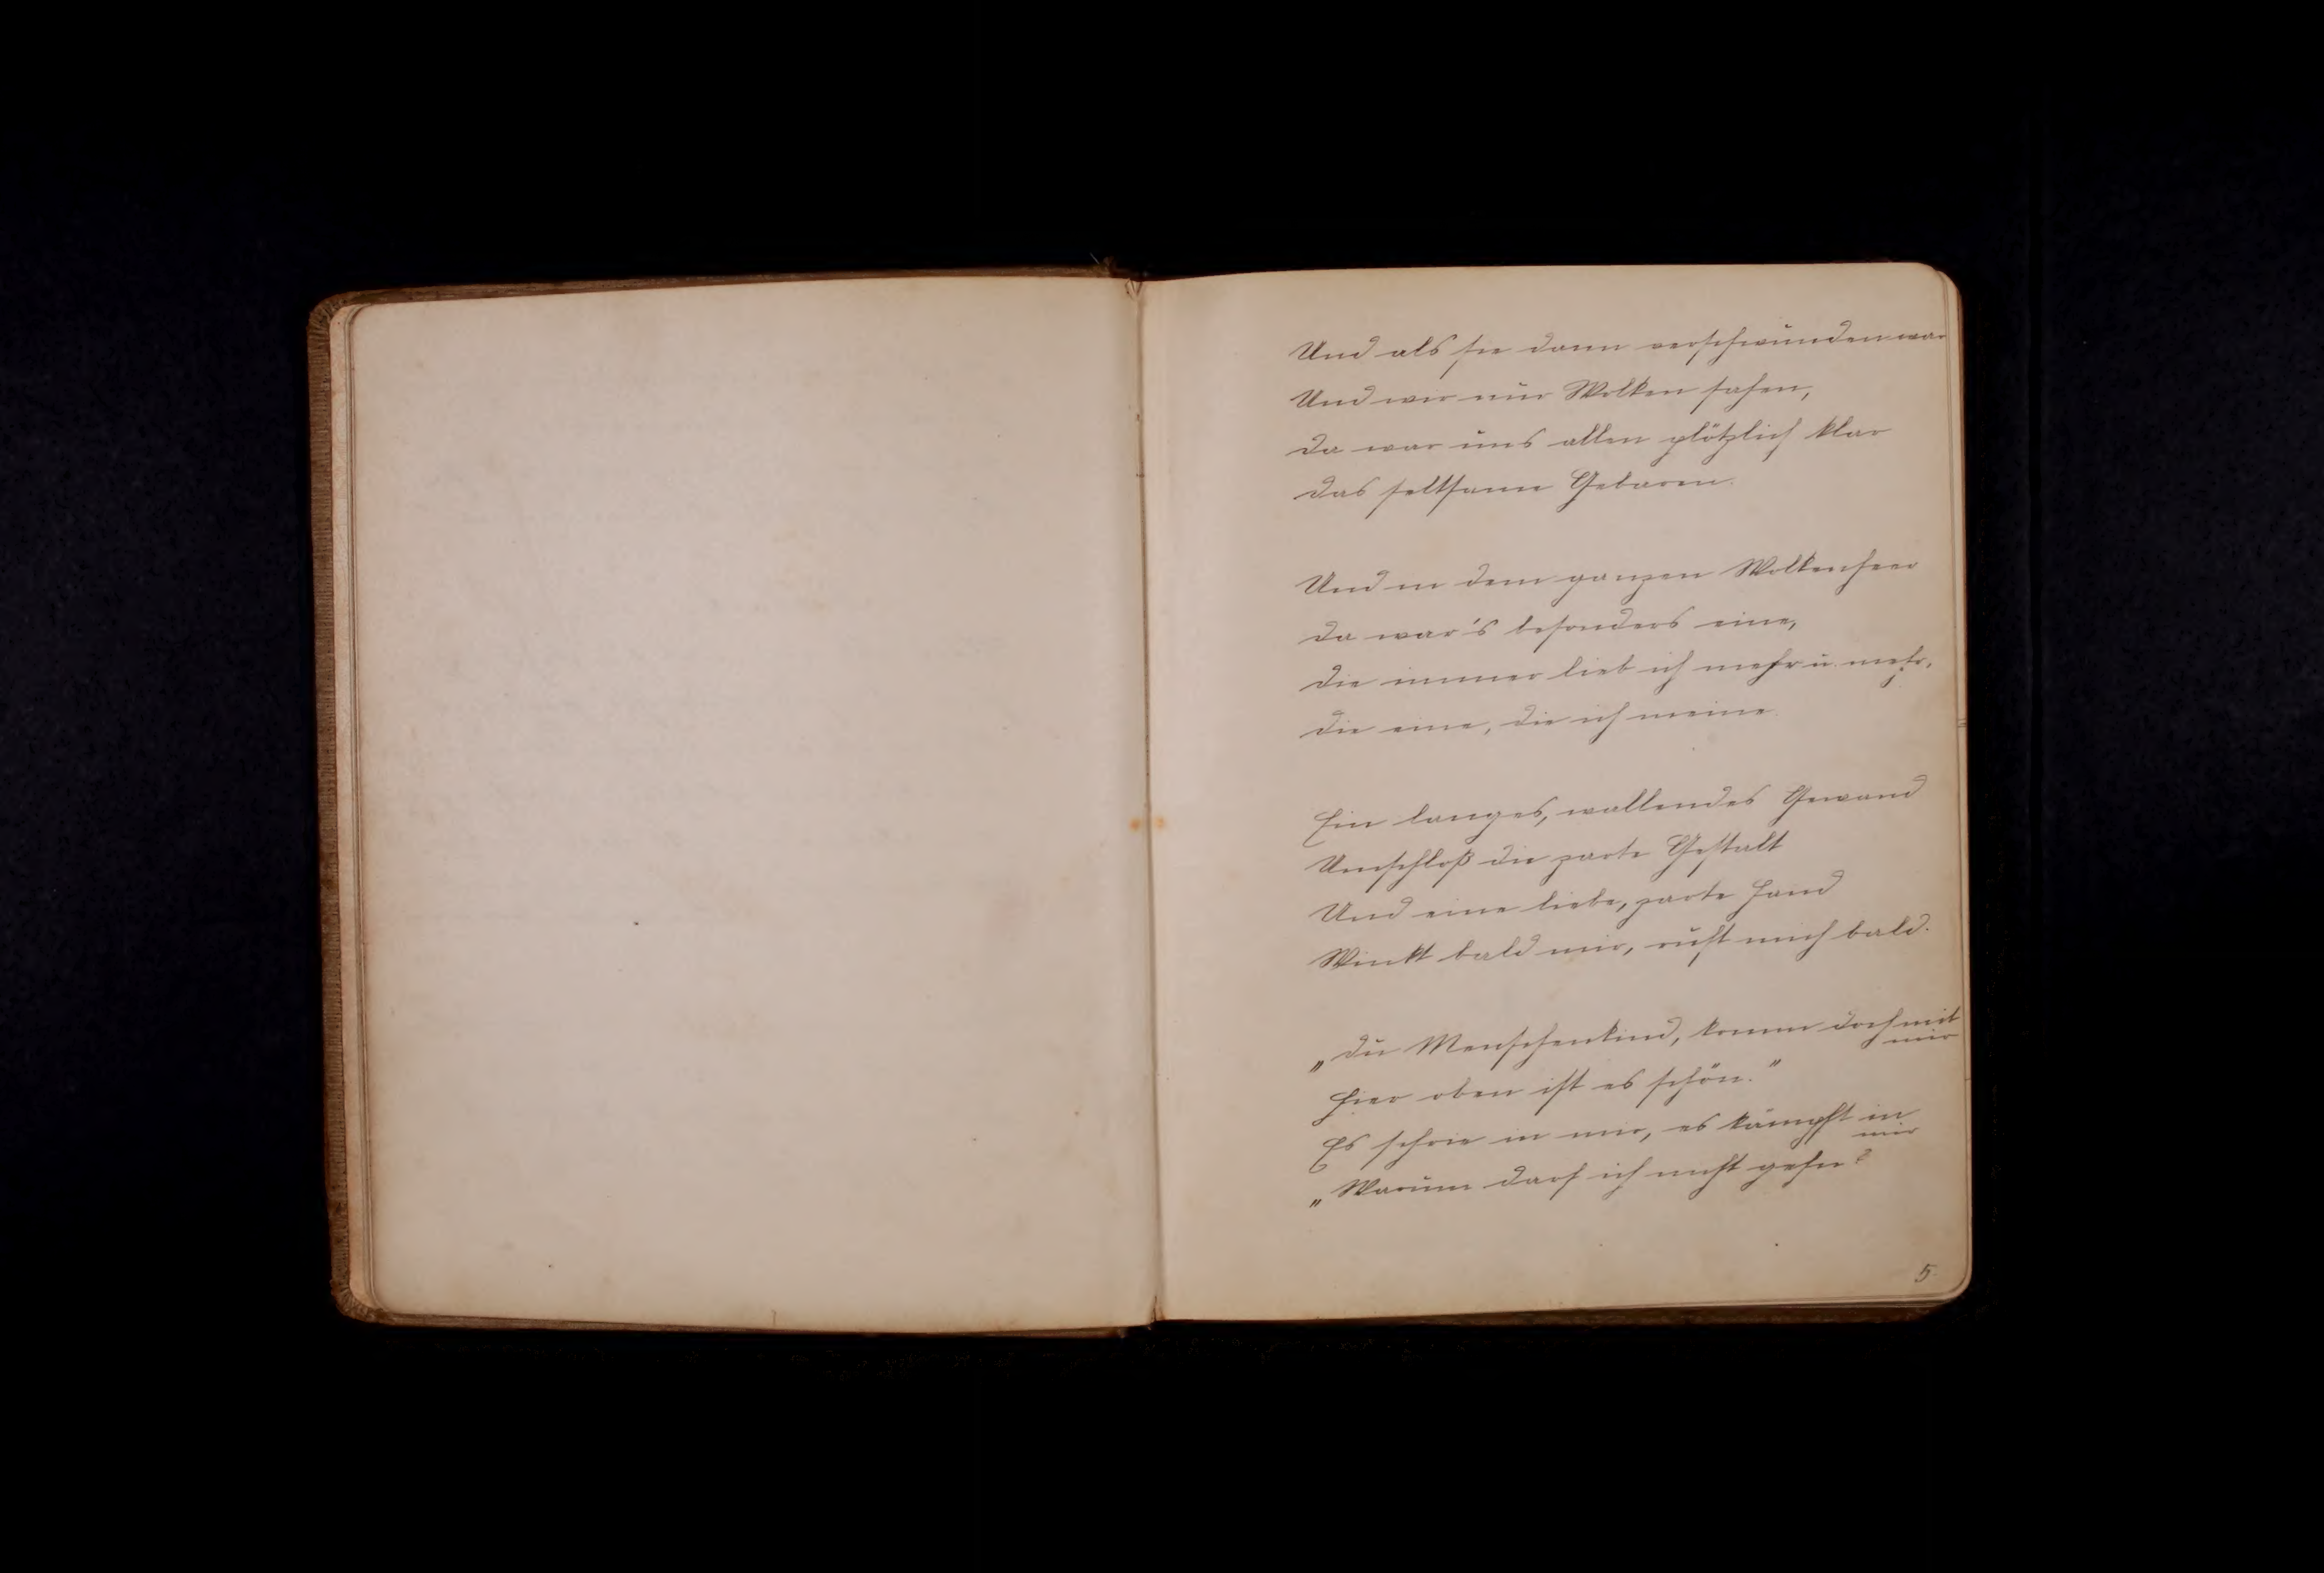 Und als sie dann verschwunden war
Und wir nur Wolken sahen,
Da war uns allen plötzlich klar
Das seltsame Gebaren.
Und in dem ganzen Wolkenheer
Da war's besonders eine,
Die immer lieb ich mehr u. mehr,
Die eine, die ich meine.
Ein langes, wallendes Gewand
Umschloß die zarte Gestalt
Und eine liebe, zarte Hand
Winkt bald mir, ruft mich bald.
„Du Menschenkind, komm doch mit
mir
Hier oben ist es schön.“
Es schrie in mir, es kämpft in
mir
„Warum darf ich nicht gehn?
5